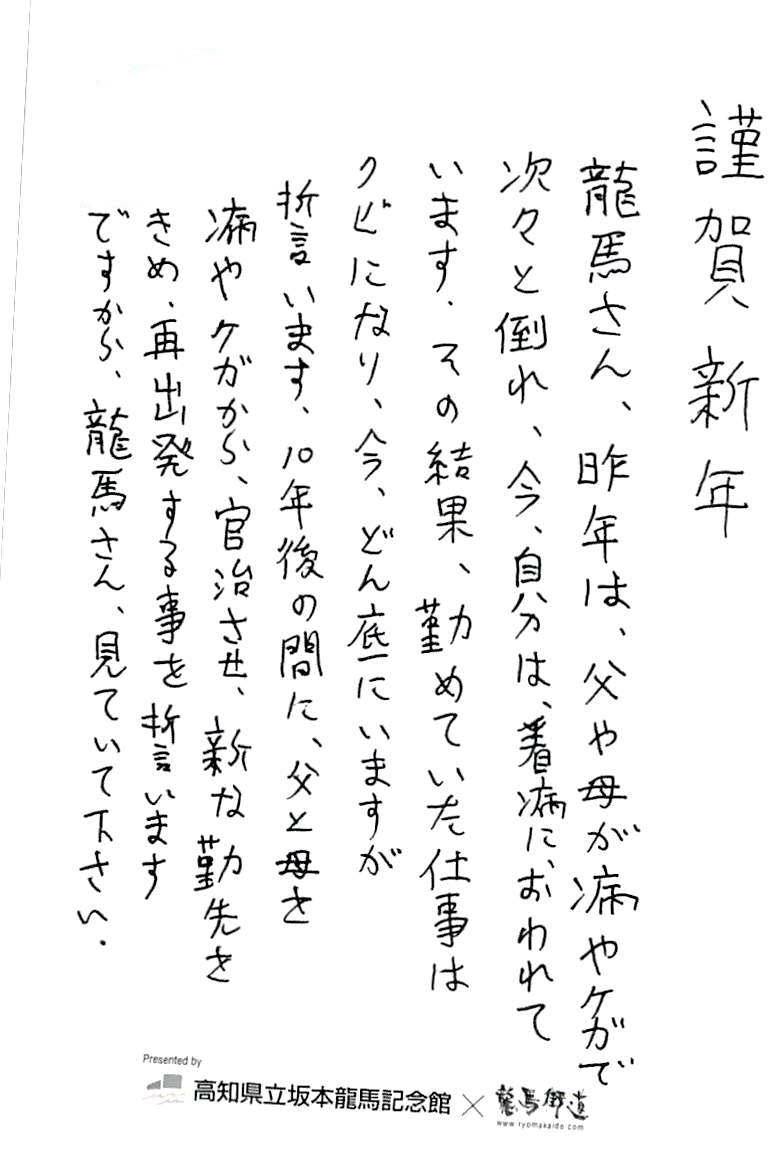 謹賀新年
龍馬さん、昨年は、父や母が病やケガで
次々と倒れ、今、自分は、看病に、おわれて
います．その結果、勤めていた仕事は
クビになり、今、どん底にいますが
誓います、10年後の間に、父と母を
病やケガから、官治させ、新な勤先を
きめ．再出発する事を誓います
ですから、龍馬さん、見ていて下さい．
Presented by
高知県立坂本龍馬記念館×龍馬街道
www.ryomakaido.com